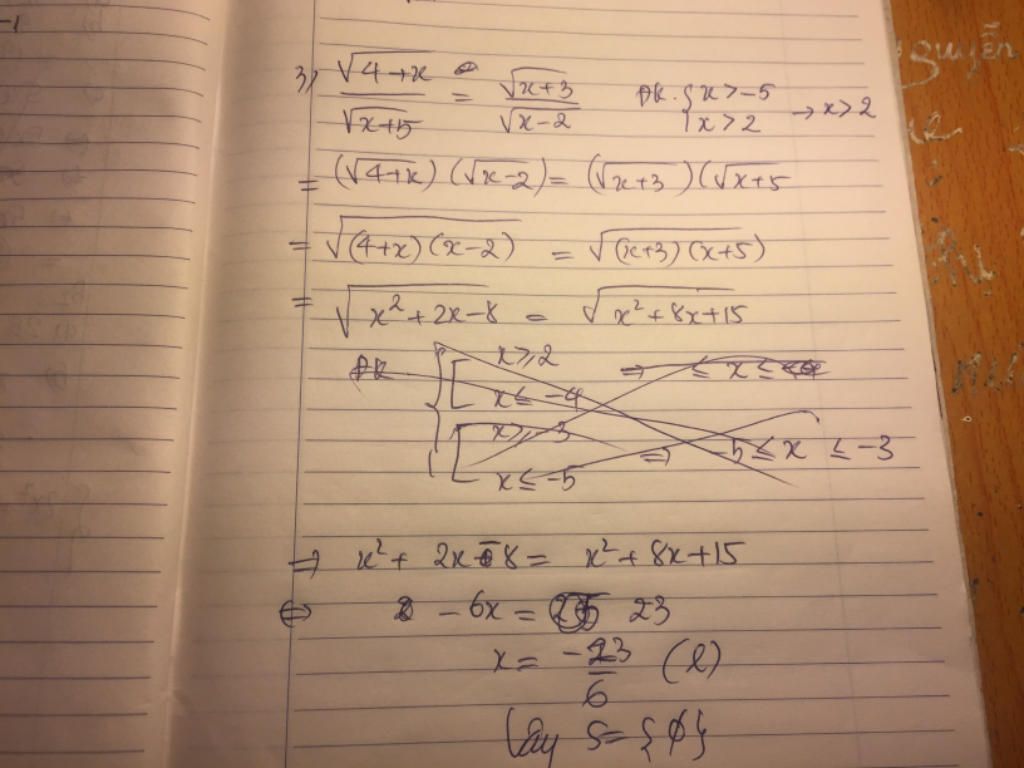 -1
3, √(4+x) / √(x+5) = √(x+3) / √(x-2) ĐK. { x > -5
{ x > 2 → x > 2
= (√(4+x)) (√(x-2)) = (√(x+3)) (√(x+5)
= √((4+x)(x-2)) = √((x+3)(x+5))
= √(x² + 2x - 8) = √(x² + 8x + 15)
ĐK { [ x ≥ 2 ⇒ ≤ x ≤
x ≤ -4
[ x ≥ -3 ⇒ -5 ≤ x ≤ -3
x ≤ -5
⇒ x² + 2x - 8 = x² + 8x + 15
⇔ - 6x = 23
x = -23/6 (l)
Vậy S = {∅}
guyễn